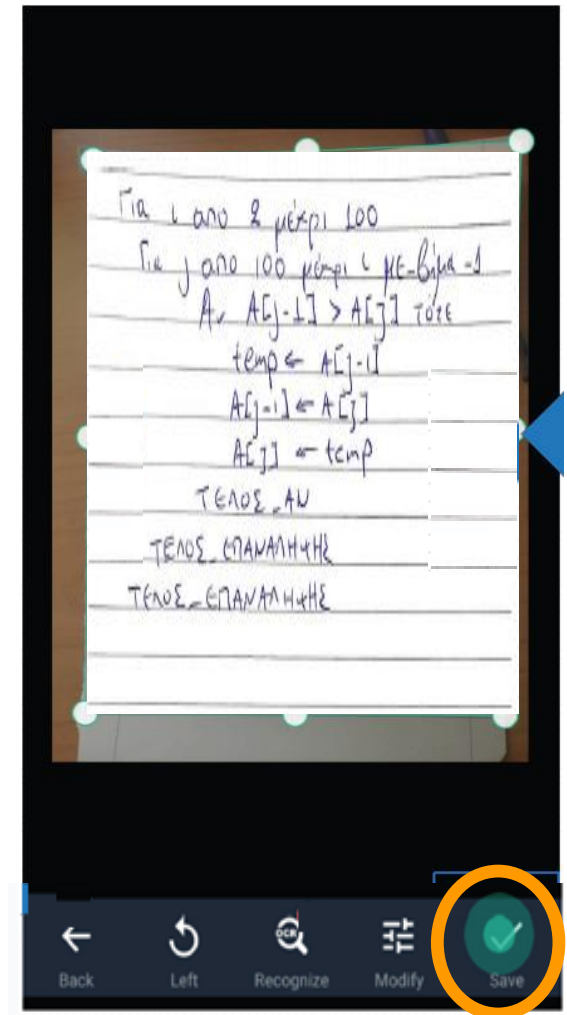 Για ι απο 2 μέχρι 100
Για j απο 100 μέχρι ι με_βήμα -1
Αν A[j-1] > A[j] τότε
temp ← A[j-1]
A[j-1] ← A[j]
A[j] ← temp
ΤΕΛΟΣ_ΑΝ
ΤΕΛΟΣ_ΕΠΑΝΑΛΗΨΗΣ
ΤΕΛΟΣ_ΕΠΑΝΑΛΗΨΗΣ
OCR
Back Left Recognize Modify Save